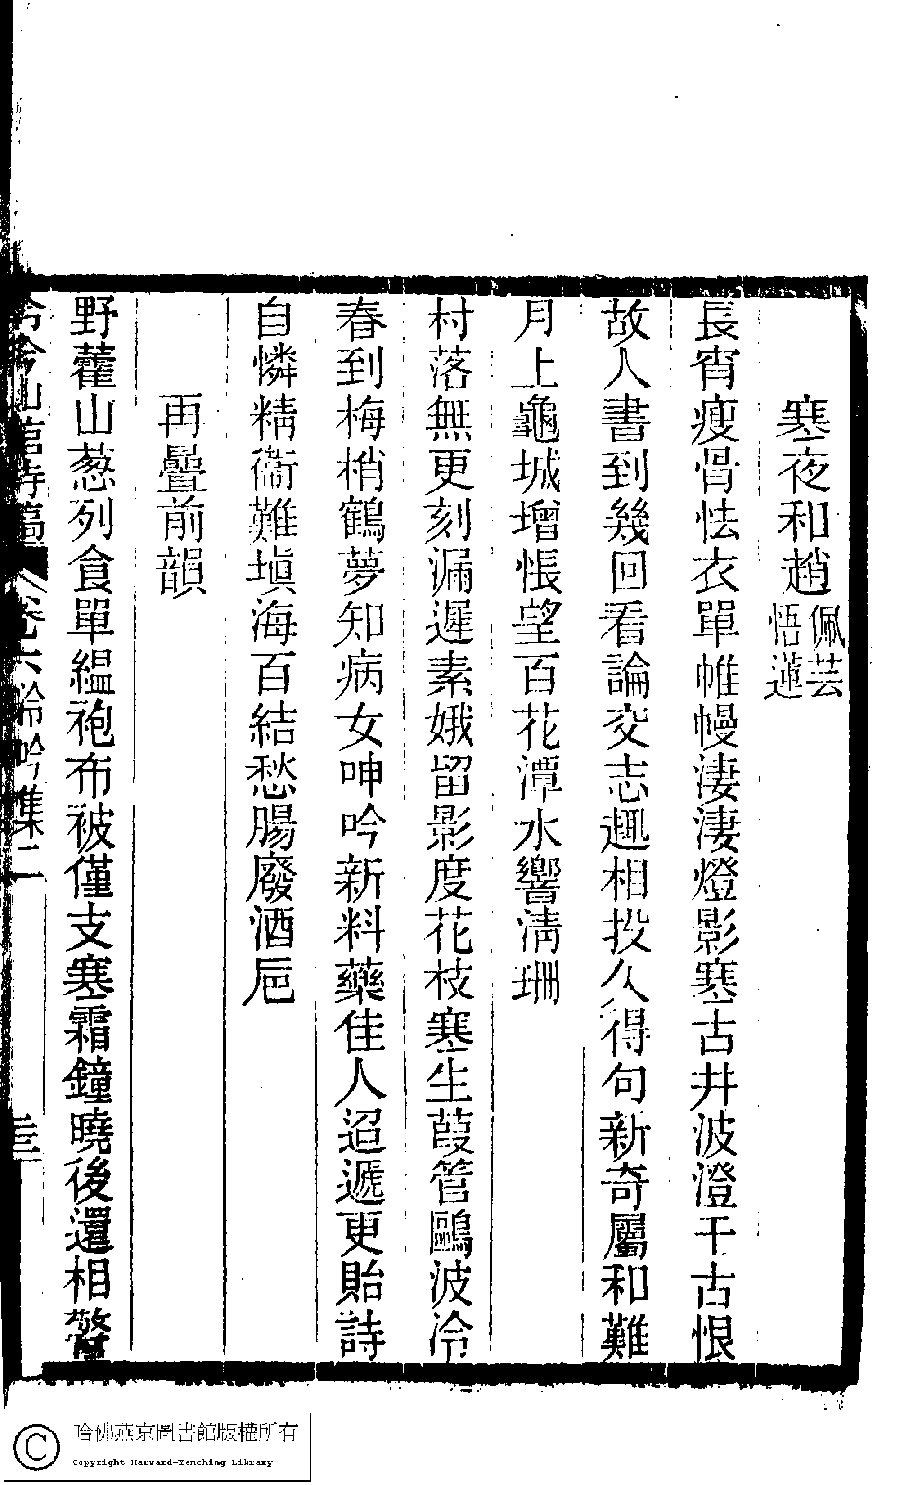 寒夜和趙佩芸悟蓮
長宵瘦骨怯衣單帷幔淒淒燈影寒古井波澄千古恨
故人書到幾回看論交志趣相投久得句新奇屬和難
月上龜城增悵望百花潭水響淸珊
村落無更刻漏遲素娥留影度花枝寒生葭管鷗波冷
春到梅梢鶴夢知病女呻吟新料藥佳人迢遞更貽詩
自憐精衞難塡海百結愁腸廢酒巵
再疊前韻
野藿山葱列食單緼袍布被僅支寒霜鐘曉後還相警
吟山舘詩稿 卷六冷吟集二
哈佛燕京圖書館版權所有
Copyright Harvard-Yenching Library